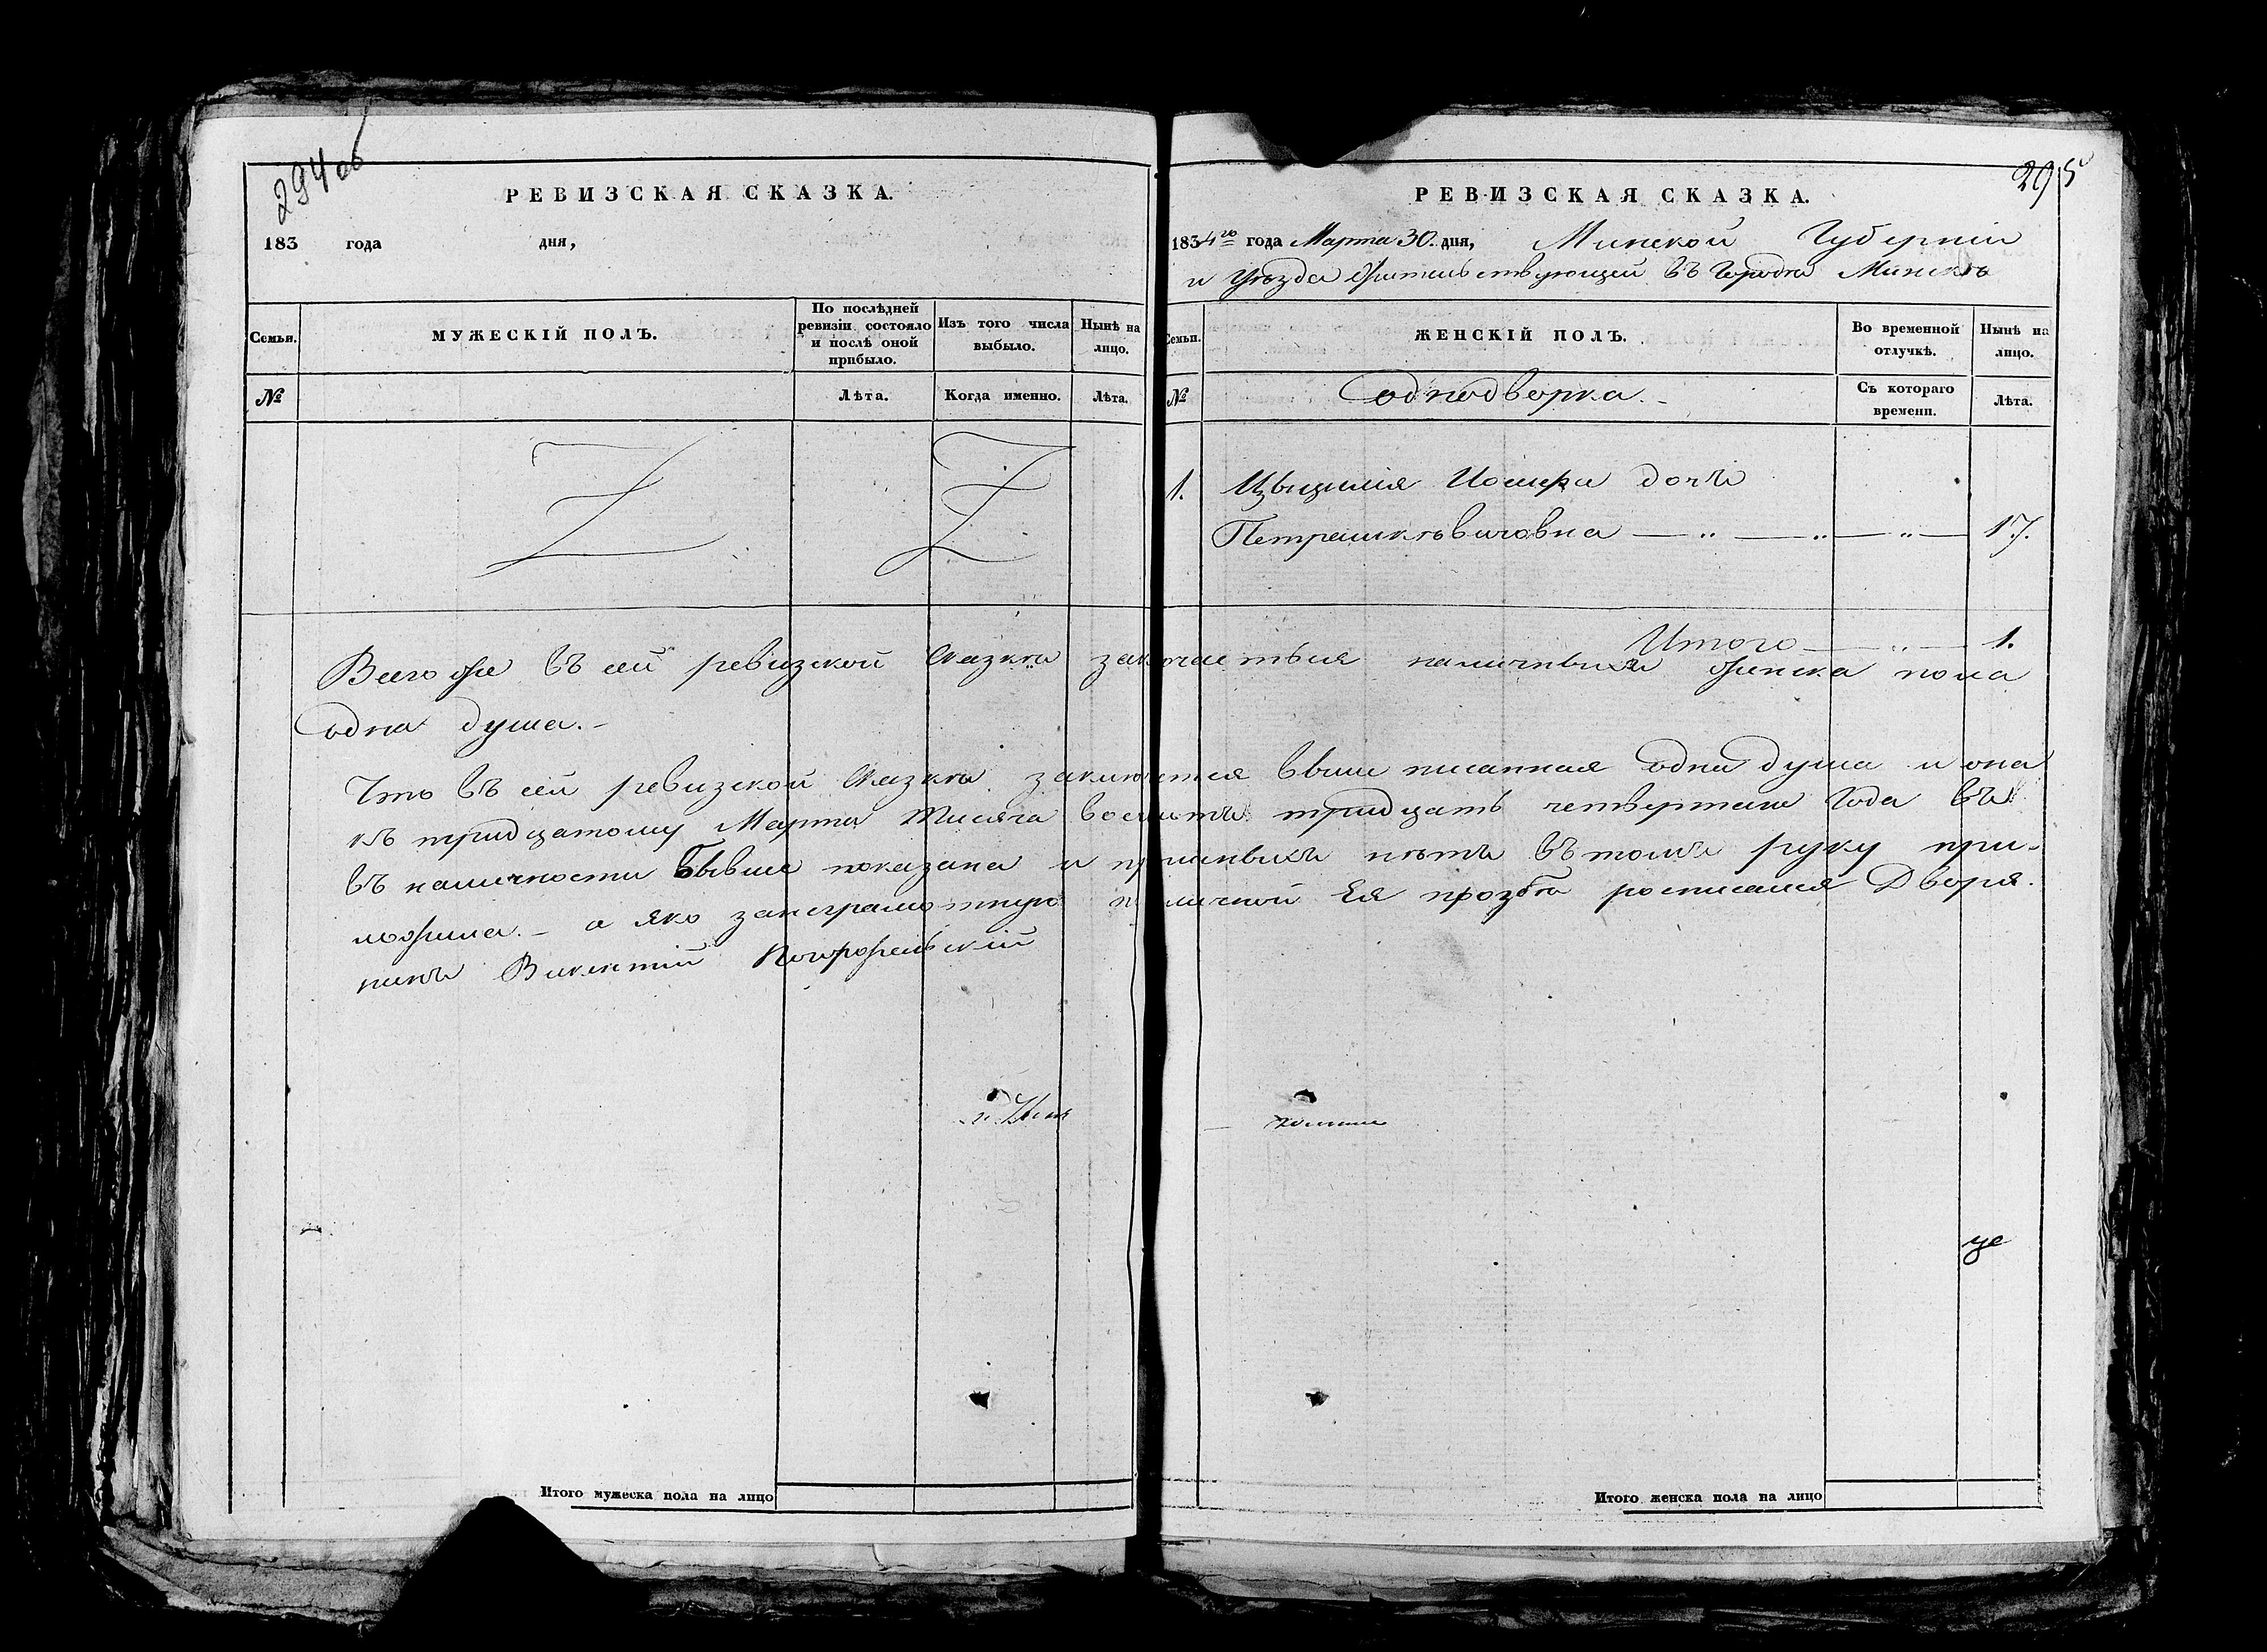 294 об
РЕВИЗСКАЯ СКАЗКА.
183 года дня,
Семьи.
МУЖЕСКІЙ ПОЛЪ.
По послѣдней ревизіи состояло и послѣ оной прибыло.
Изъ того числа выбыло.
Нынѣ на лицо.
№
Лѣта.
Когда именно.
Лѣта.
295
РЕВИЗСКАЯ СКАЗКА.
1834го года Марта 30. дня, Минской Губерніи
и Уѣзда жительствующей въ Городѣ Минскѣ
Семьи.
ЖЕНСКІЙ ПОЛЪ.
Во временной отлучкѣ.
Нынѣ на лицо.
№
Однодворка.
Съ котораго времени.
Лѣта.
1. Іосифа дочь
Петрашкѣвичовна 17.
Итого 1.
Всего же въ сей ревизской сказкѣ наличныхъ женска пола
одна душа.
Что въ сей ревизской сказкѣ выше писанная одна душа и она
къ тридцатому Марта тридцать четвертаго Года
въ наличности показана и нѣтъ въ томъ руку при-
ложила. а яко личной Ея прозбѣ росписался Дворя-
нинъ Викентій
Итого мужеска пола на лицо
Итого женска пола на лицо